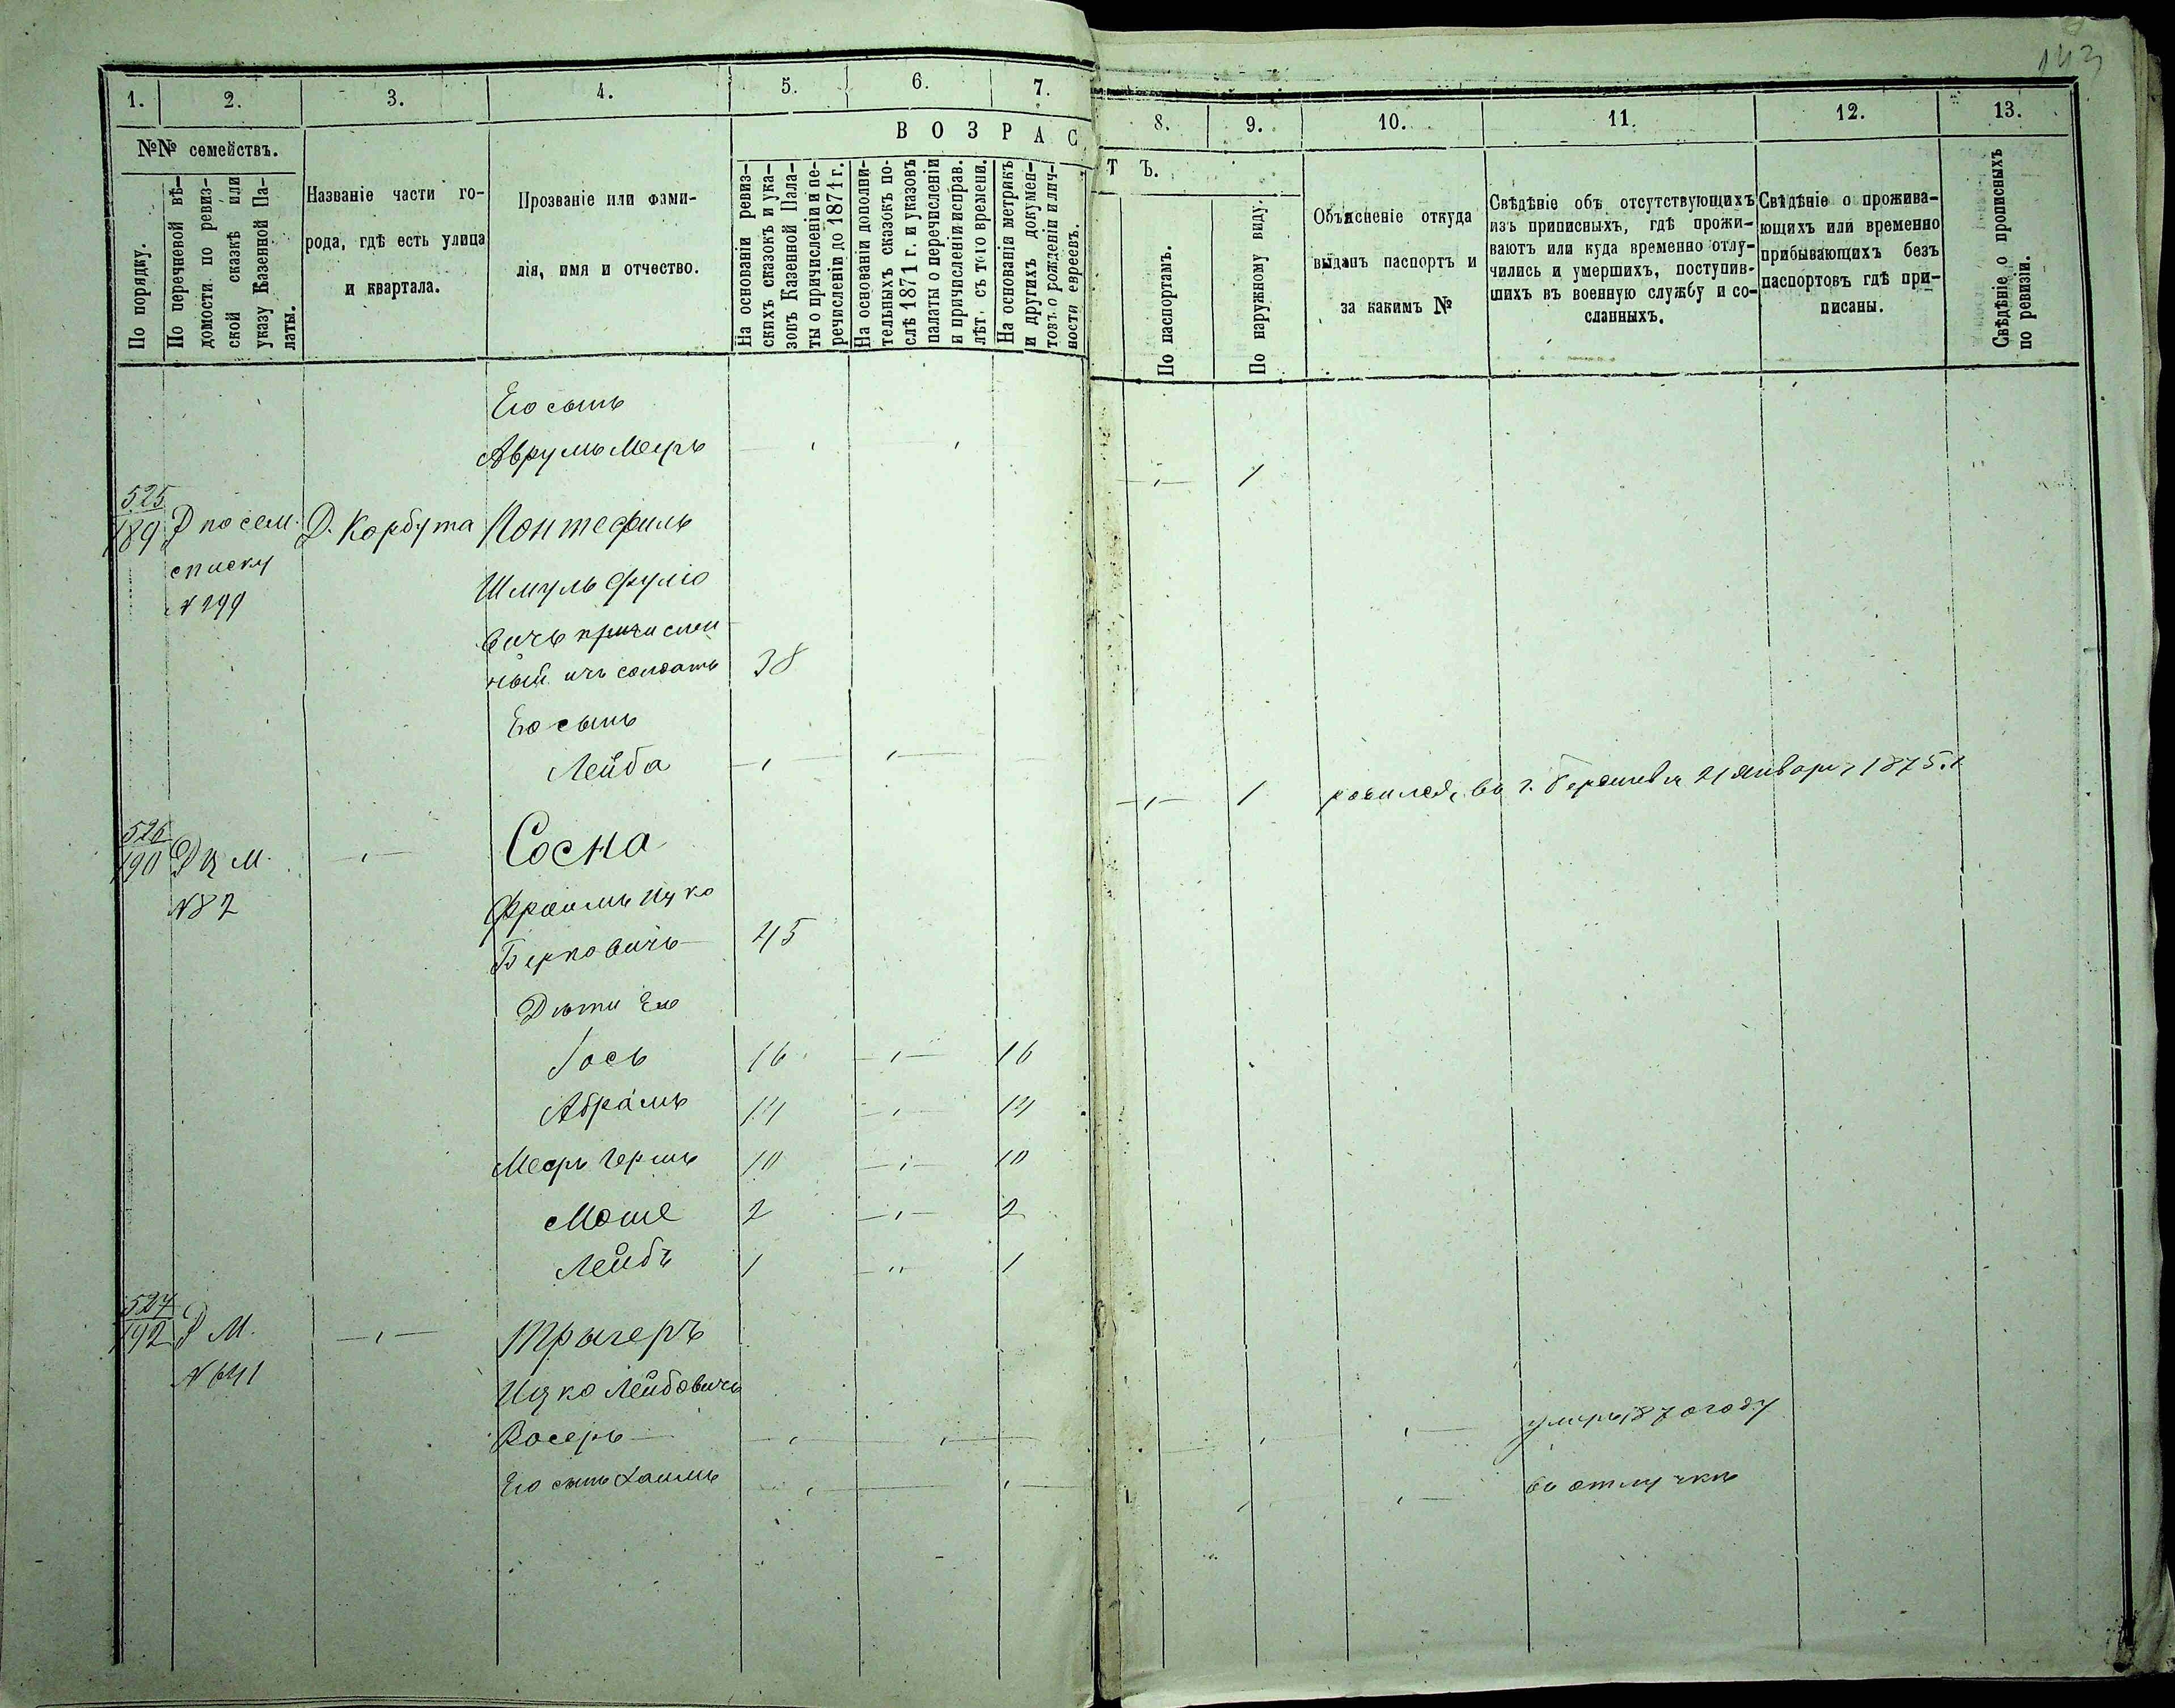 143
1. 2. 3. 4. 5. 6. 7. 8. 9. 10. 11. 12. 13.
№№ семействъ.
По порядку.
По перечневой вѣ-
домости по ревиз-
ской сказкѣ или
указу Казенной Па-
латы.
Названіе части го-
рода, гдѣ есть улица
и квартала.
Прозваніе или фами-
лія, имя и отчество.
ВОЗРАСТЪ.
На основаніи ревиз-
скихъ сказокъ и ука-
зовъ Казенной Пала-
ты о причисленіи и пе-
речисленіи до 1871 г.
На основаніи дополни-
тельныхъ сказокъ по-
слѣ 1871 г. и указовъ
палаты о перечисленіи
и причисленіи исправ.
лѣт. съ того времени.
На основаніи метрикъ
и другихъ докумен-
товъ о рожденіи и лич-
ности евреевъ.
По паспортамъ.
По наружному виду.
Объясненіе откуда
выданъ паспортъ и
за какимъ №
Свѣдѣніе объ отсутствующихъ
изъ приписныхъ, гдѣ прожи-
ваютъ или куда временно отлу-
чились и умершихъ, поступив-
шихъ въ военную службу и со-
сланныхъ.
Свѣдѣніе о прожива-
ющихъ или временно
прибывающихъ безъ
паспортовъ гдѣ при-
писаны.
Свѣдѣніе о прописныхъ
по ревизіи.
Его сынъ
Аврумъ Меиръ 1
525
189 по сем. Д. Корбута Понтефиль
списку
№ 299
Шмуль
вичъ причислен
ный изъ солдатъ 38
Его сынъ
Лейба 1 родился въ г. 21 Января 1875 г.
526
190 М. Сосна
№ 82
Фроимъ Ицко
Берковичъ 45
Дѣти Его
Іось 16 16
Абрамъ 14 14
Мееръ Гершъ 10 10
Моше 2 2
Лейбъ 1 1
527
192 М. Трыгеръ
№ 641
Ицко Лейбовичъ
умеръ 1870 году
Его сынъ Хаимъ въ отлучкѣ